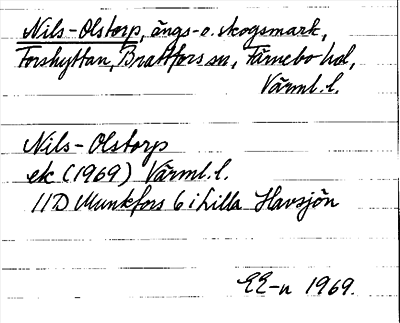 Nils-Olstorp, ängs- o. skogsmark,
Forshyttan, Brattfors sn, Färnebo hd,
Värml. l.
Nils-Olstorp
ek (1969) Värml. l.
11D Munkfors 6 i Lilla Havsjön
EE-n 1969.